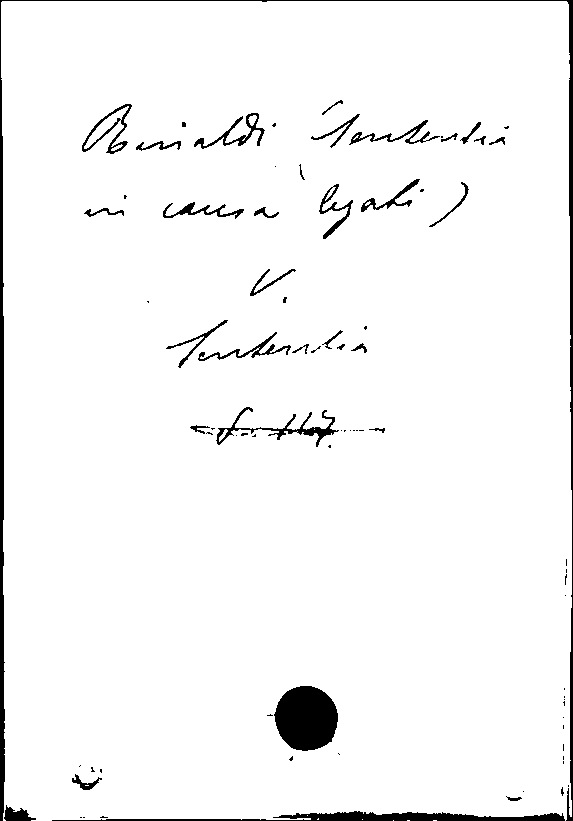 Rinaldi (Sententia
in causa legati)
V.
Sententia